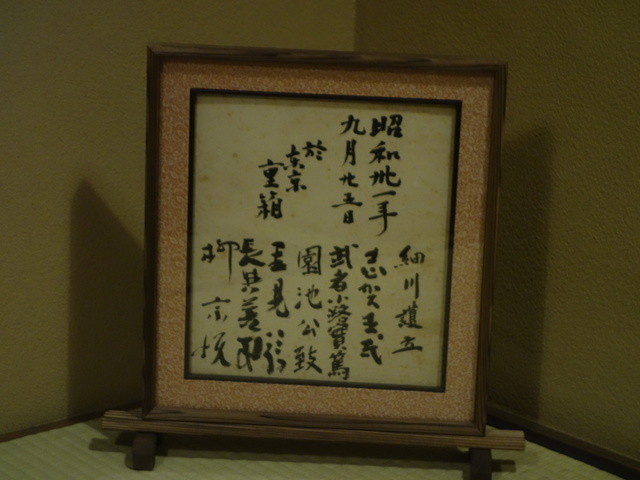 昭和卅一年
九月廿五日
於
東京
重箱
細川護立
志賀直哉
武者小路實篤
園池公致
里見弴
長與善郎
柳宗悦